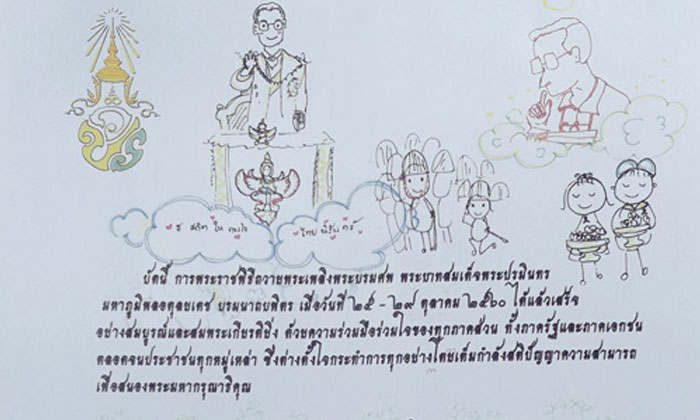 บัดนี้ การพระราชพิธีถวายพระเพลิงพระบรมศพ พระบาทสมเด็จพระปรมินทร
มหาภูมิพลอดุลยเดช บรมนาถบพิตร เมื่อวันที่ ๒๕ - ๒๙ ตุลาคม ๒๕๖๐ ได้แล้วเสร็จ
อย่างสมบูรณ์และสมพระเกียรติยิ่ง ด้วยความร่วมมือร่วมใจของทุกภาคส่วน ทั้งภาครัฐและภาคเอกชน
ตลอดจนประชาชนทุกหมู่เหล่า ซึ่งต่างตั้งใจกระทำการทุกอย่างโดยเต็มกำลังสติปัญญาความสามารถ
เพื่อสนองพระมหากรุณาธิคุณ